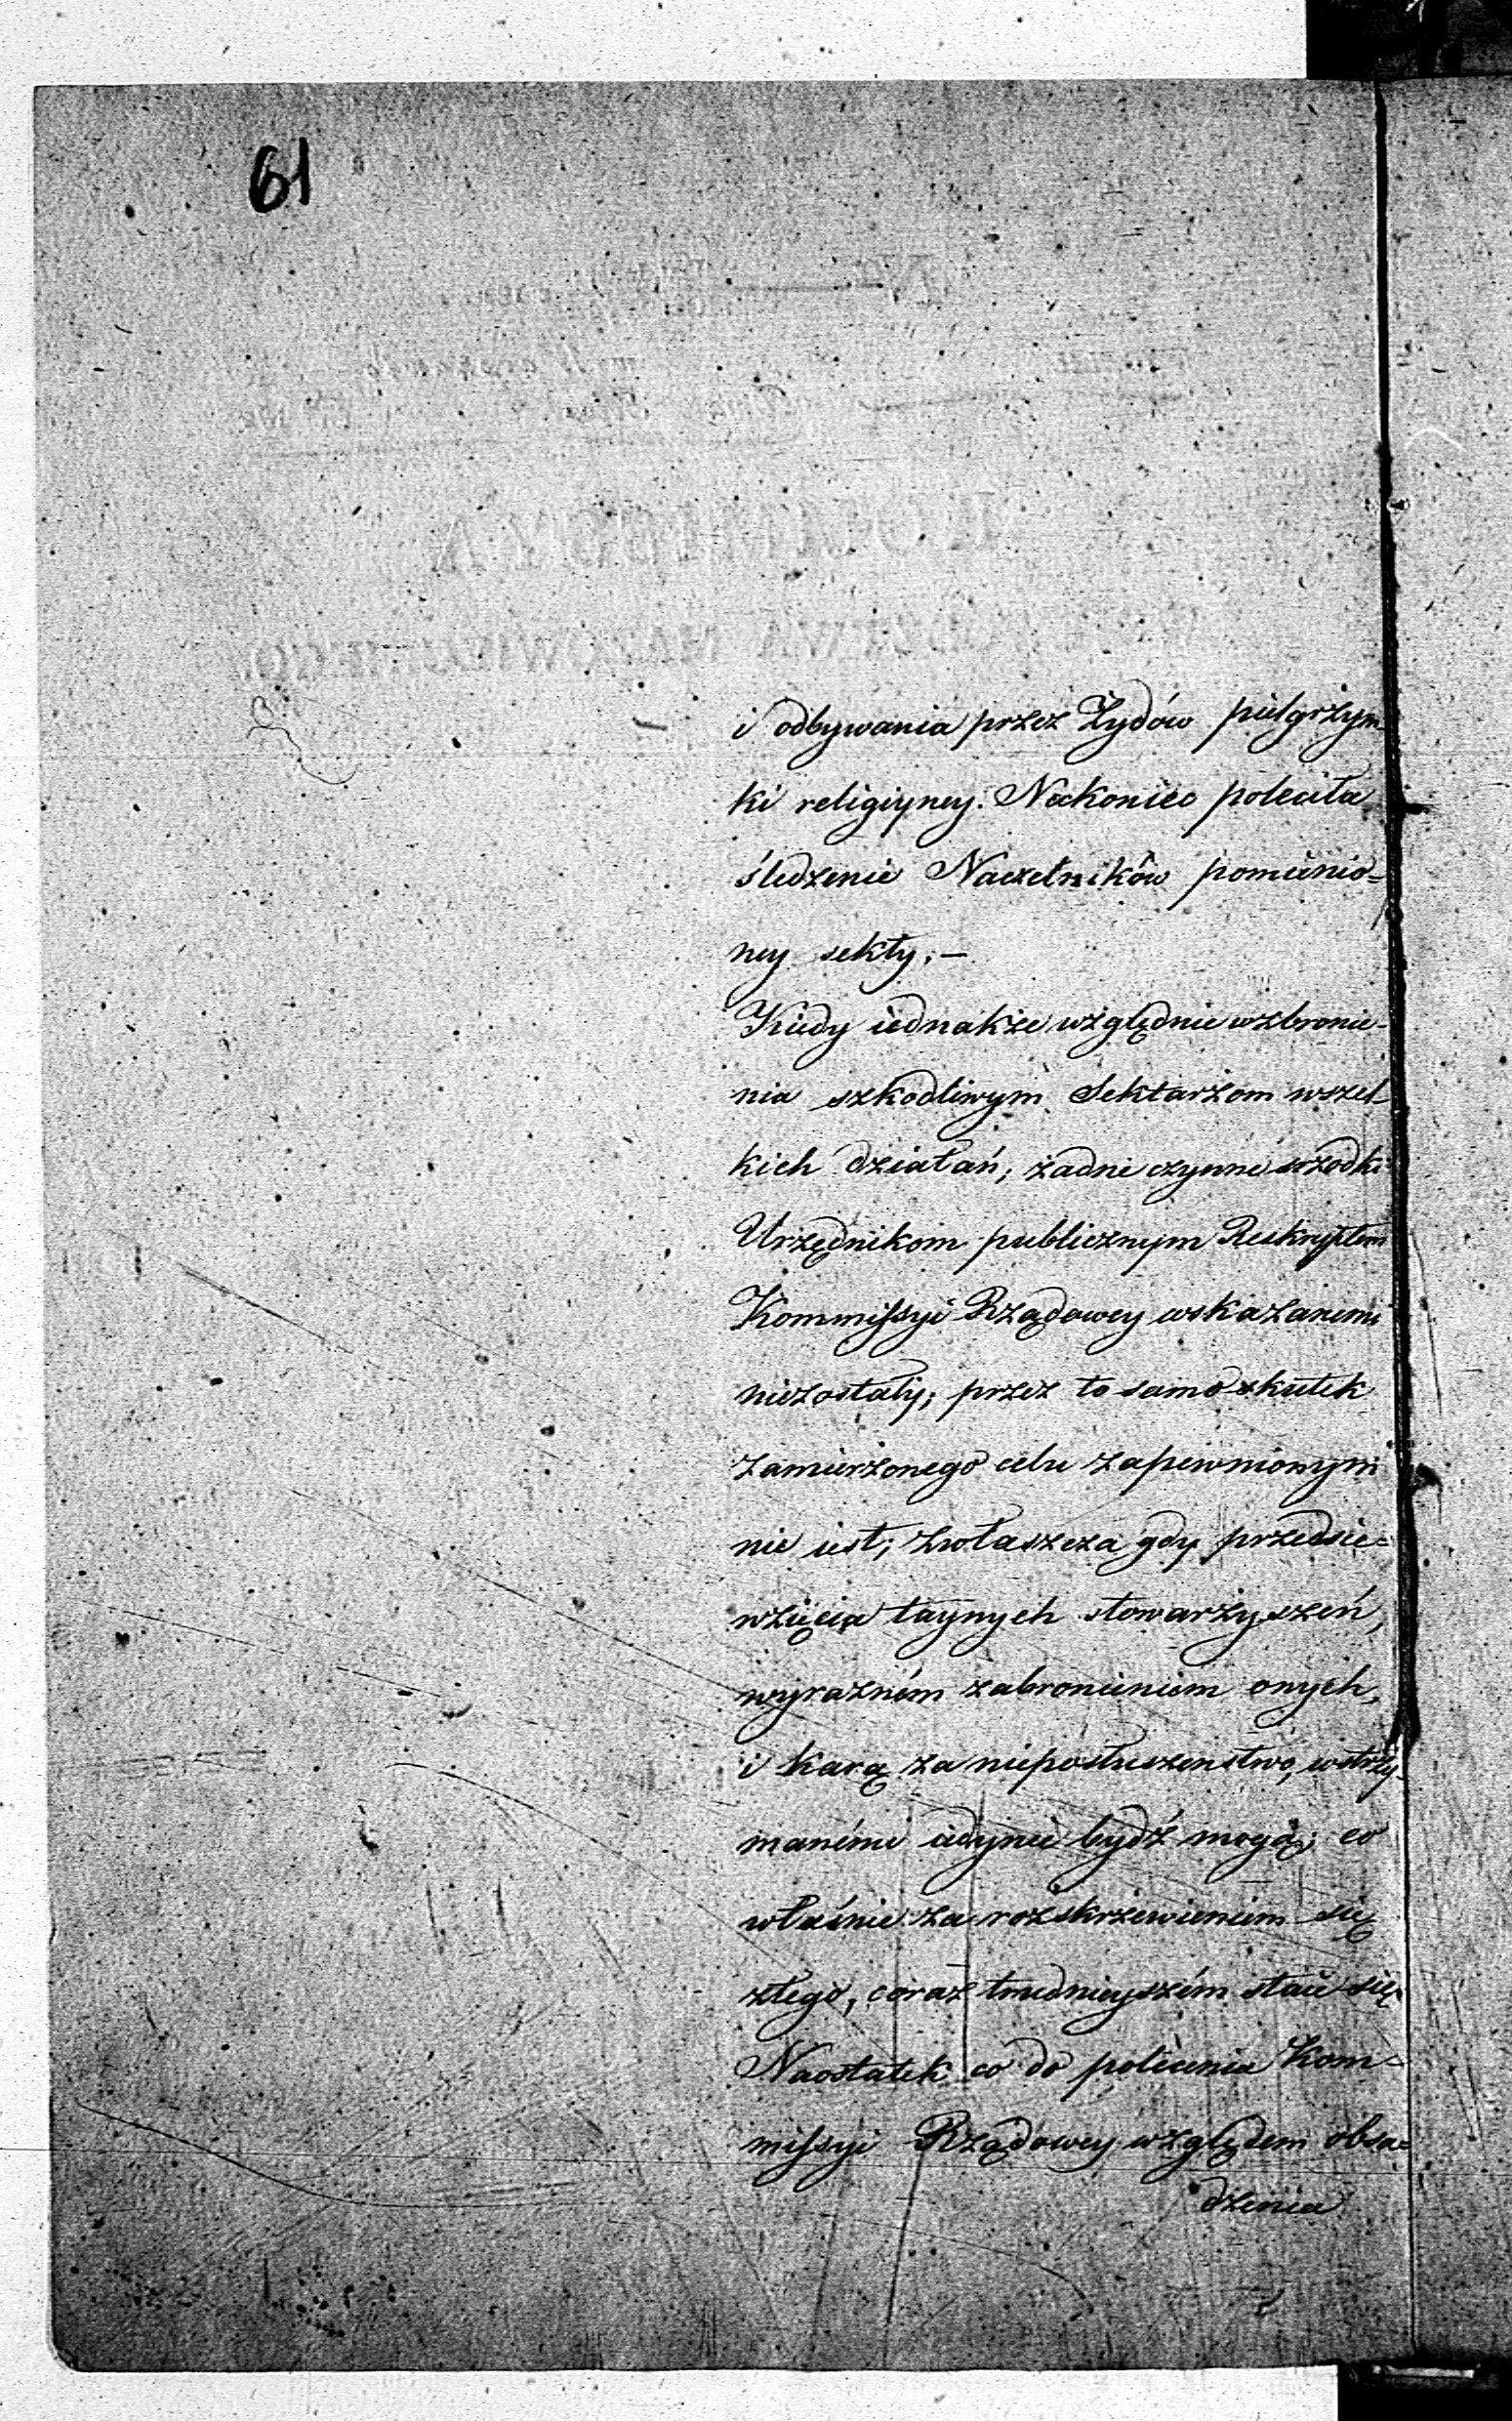 61
i odbywania przez Żydów pielgrzym-
ki religiyney. Nakoniec poleciła
śledzenie Naczelników pomienio=
ney sekty.—
Kiedy iednakże względnie wzbronie-
nia szkodliwym Sektarzom wszel-
kich działań, żadne czynne srzodki
Urzędnikom publicznym Reskryptem
Kommissyi Rządowey wskazanemi
niezostały; przez to samo skutek
zamierzonego celu zapewnionym
nie iest; zwłaszcza gdy przedsie=
wzięcia taynych stowarzyszeń,
wyraźném zabronieniem onych,
i karą za nieposłuszenstwo, wstrzy-
manémi iedynie bydź mogą; co
właśnie za rozskrzewieniem się
złego, coraz trudnieyszém staie się
Naostatek co do polecenia Kom=
missyi Rządowey względem obsa=
dzenia